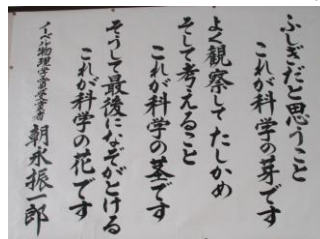 ふしぎだと思うこと
これが科学の芽です
よく観察してたしかめ
そして考えること
これが科学の茎です
そうして最後になぞがとける
これが科学の花です
ノーベル物理学賞受賞者 朝永振一郎